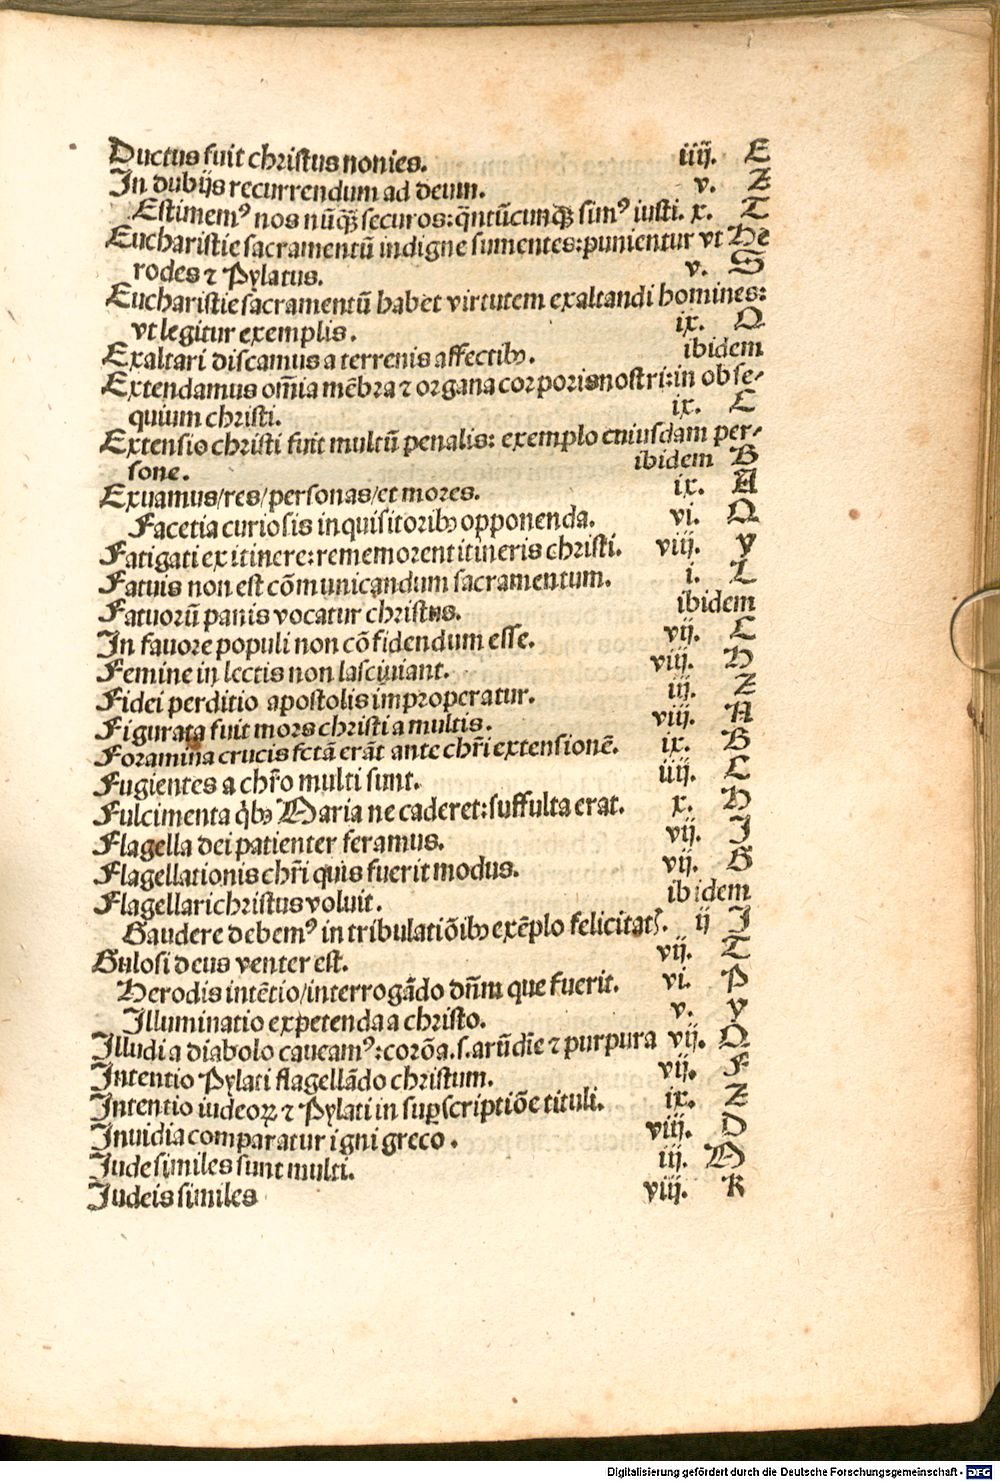 Ductus fuit christus nonies. iiij. E
In dubijs recurrendum ad deum. v. Z
Estimemꝰ nos nūqȝ securos: q̄ntūcunqȝ simꝰ iusti. x. T
Eucharistie sacramentū indigne sumentes: punientur vt He
rodes ⁊ Pylatus. v. S
Eucharistie sacramentū habet virtutem exaltandi homines:
vt legitur exemplis. ix. O
Exaltari discamus a terrenis affectibꝫ. ibidem
Extendamus om̄ia mēbra ⁊ organa corporis nostri: in obse⸗
quium christi. ix. C
Extensio christi fuit multū penalis: exemplo cuiusdam per⸗
sone. ibidem B
Exuamus/res/personas/et mores. ix. A
Facetia curiosis inquisitoribꝫ opponenda. vi. Q
Fatigati ex itinere: rememorent itineris christi. viij. y
Fatuis non est cōmunicandum sacramentum. i. L
Fatuorū panis vocatur christus. ibidem
In fauore populi non cōfidendum esse. vij. C
Femine in lectis non lasciuiant. viij. H
Fidei perditio apostolis improperatur. iij. Z
Figurata fuit mors christi a multis. viij. A
Foramina crucis fctā erāt ante chr̄i extensionē. ix. B
Fugientes a chr̄o multi sunt. iiij. C
Fulcimenta q̇bꝫ Maria ne caderet: suffulta erat. x. H
Flagella dei patienter feramus. vij. J
Flagellationis chr̄i quis fuerit modus. vij. G
Flagellari christus voluit. ibidem
Gaudere debemꝰ in tribulatiōibꝫ exēplo felicitatꝭ. ij J
Gulosi deus venter est. vij. T
Herodis intētio/interrogādo dn̄m que fuerit. vi. P
Illuminatio expetenda a christo. v. y
Illudi a diabolo caueamꝰ: corōa.s.arūdie ⁊ purpura vij. O
Intentio Pylati flagellādo christum. vij. F
Intentio iudeoꝝ ⁊ Pylati in suꝑscriptiōe tituli. ix. Z
Inuidia comparatur igni greco. viij. D
Jude similes sunt multi. iij. M
Judeis similes viij. K
Digitalisierung gefördert durch die Deutsche Forschungsgemeinschaft - DFG